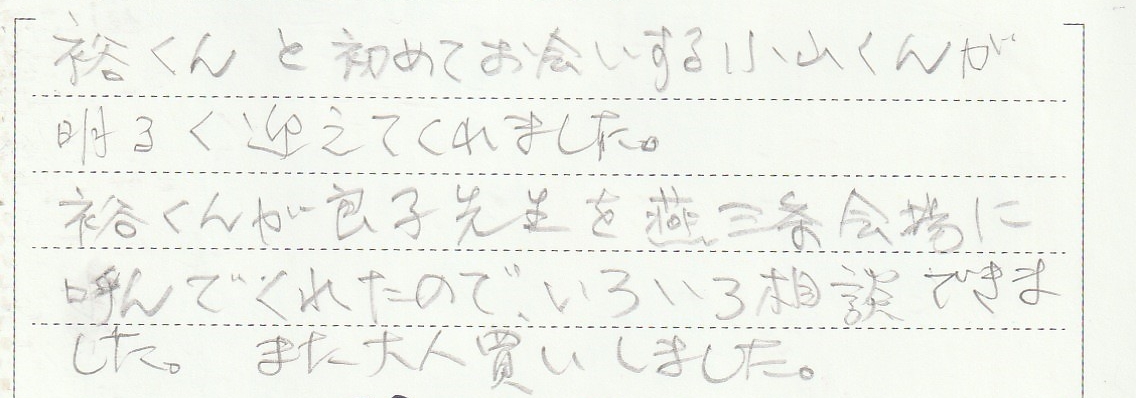 裕くんと初めてお会いする小山くんが
明るく迎えてくれました。
裕くんが良子先生を燕三条会場に
呼んでくれたので、いろいろ相談できま
した。また大人買いしました。